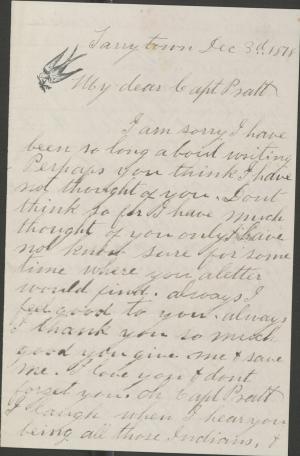 Tarrytown Dec 3d. 1878
My dear Capt Pratt
I am sorry I have
been so long about writing
Perhaps you think I have
not thought of you. Dont
think so for I have much
thought of you only I have
not know sure for some
time where you a letter
would find. always I
feel good to you. always
I thank you so much
good you give me & save
me. I love you & dont
forget you. oh Capt Pratt
I laugh when I hear you
being all those Indians, &